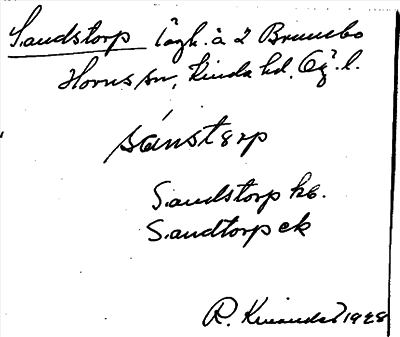 Sandstorp lägh. å 2 Brunsbo
Horns sn, Kinda hd, Ög. l.
sánstərp
Sandstorp kb.
Sandtorp ek
R. 1928